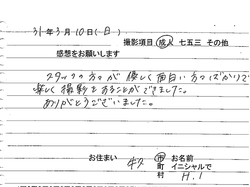 31年3月10日(日)
撮影項目 成人 七五三 その他
感想をお願いします
スタッフの方々が優しく面白い方々ばかりで
楽しく撮影をすることができました。
ありがとうございました。
お住まい 市 お名前
町 イニシャルで
村 H.I